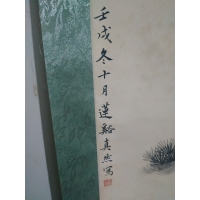 壬戌冬十月蓮谿真然寫